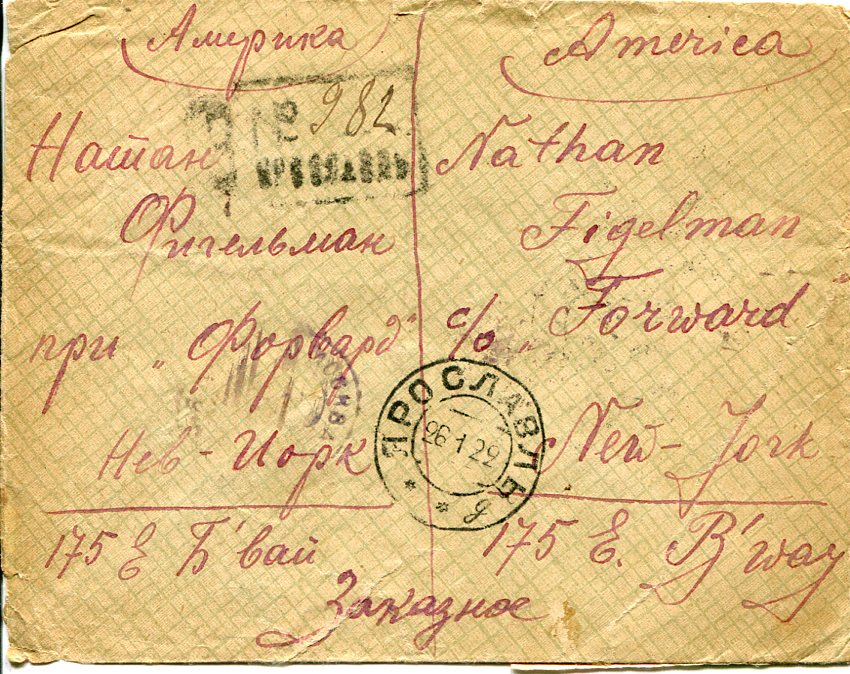 Америка
America
№ 982.
ЯРОСЛАВЛЬ
Натан
Фигельман
при „Форвард"
Нев-Иорк
175 E Б'вай
Nathan
Figelman
c/o „Forward"
New-Jork
175 E. B'way
Заказное
МОСКВА
ЯРОСЛАВЛЬ
26 1 22
* * д